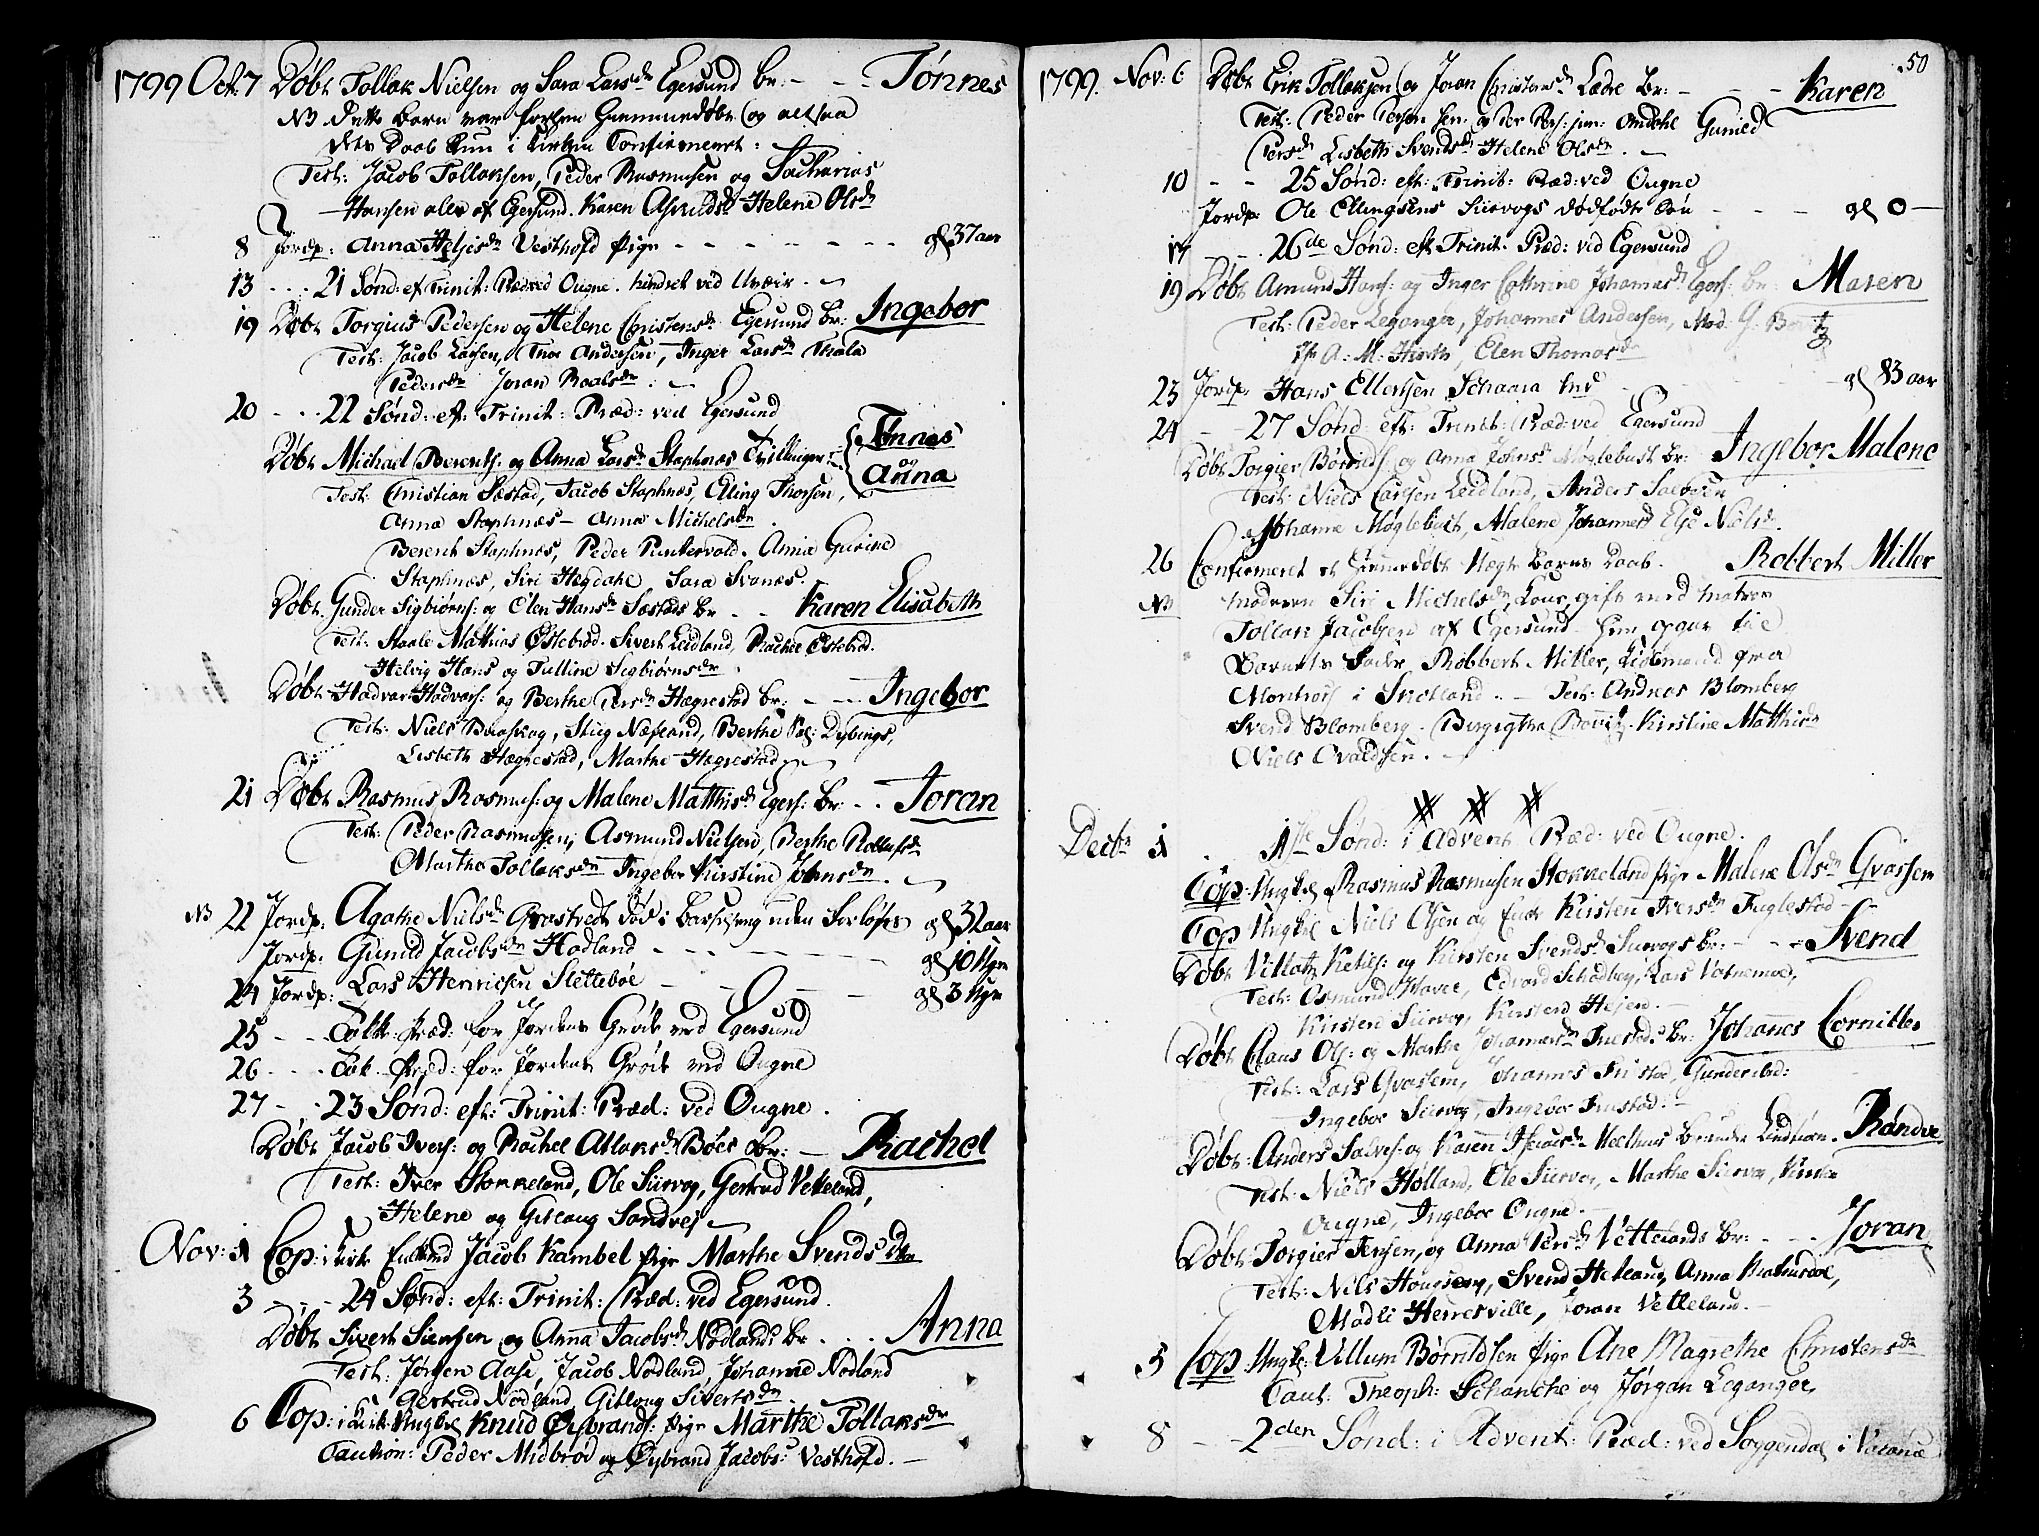 1799 Oct: 7 Døbt Tollak Nielsen og Sara Larsdr Egersund br: - - - Tønnes
NB dette barn var forhen hiemmedøbt og altsaa
dets Daab kun i Kirken Confirmeret:
Test: Jacob Tollaksen, Peder Rasmusen og Zacharias
Hansen alle af Egersund. Karen Asmundsd. Helene Olsdr
8 Jordp: Anna Heljesdr Vesthofd Pige - - - - - - - gl 37 aar
13 - - - 21 Sønd: ef Trinit: Præd: ved Ougne. hindret ved Uveir.
19 Døbt Torgius Pedersen og Helene Christensdr Egersund br: Ingebor
Test: Jacob Larsen, Tnor Andersen, Inger Larsdr Thala
Pedersdr Joran Roalsdr
20 - - - 22 Sønd: eft: Trinit: Præd: ved Egersund
Døbt Michael Berents: og Anna Larsd. Staphnæs Tvillinger: { Tønnes
Anna
Test: Christian Sæstad, Jacob Staphnæs, Elling Thorsen,
Anna Staphnæs - Anna Michelsdr.
Berent Staphnæs, Peder Puntervold. Anna Gurine
Staphnæs, Siri Hegdahl, Sara Svanæs.
Døbt Gunder Sigbiørns: og Elen Hansdr Sæstads br - - Karen Elisabeth
Test: Staale Mathias Østebrød. Sivert Leidland, Rachel Østebrød.
Helvig Hans og Tulline Sigbiørnsdr.
Døbt Hadvar Hadvars: og Berthe Persdr Hægrestad br: - - - Ingebor
Test: Niels Svaaskog, Stieg Næsland, Berthe Sal: Dybings,
Lisbeth Hægrestad, Marthe Hegrestad
21 Døbt Rasmus Rasmus: og Malene Matthisdr Egers: br: . . Joran
Test: Peder Rasmusen, Asmund Nielsen, Berthe Rollufsdr
Marthe Tollaksdr Ingebor Kirstine Johnsdr.
NB 22 Jordp: Agathe Nielsdr Grastvedt død i Barselseng uden Forløsn gl 32 aar
Jordp: Gunild Jacobsdr Hodland - - - - - - - gl 10 Uger
24 Jordp: Lars Henricsen Slettebøe - - - - - gl 3 Uger
25 - - Takk. Præd: for Jordens Grøde ved Egersund
26 - - - Tak Præd: for Jordens Grøde ved Ougne
27 - . 23 Sønd: eft: Trinit: Præd: ved Ougne.
Døbt Jacob Ivers: og Rachel Atlaksdr Bøes br: - Rachel
Test: Iver Stokkeland, Ole Siirvog, Gertrud Vetteland,
Helene og Gitlaug Sandvej
Nov: 1 Cop: i Kirk Enkemd Jacob Kambel Pige Marthe Svends Dtr
3 - - - 24 Sønd: eft: Trinit: Præd: ved Egersund.
Døbt Sivert Siversen og Anna Jacobsd. Nødlands br. . . . Anna
Test: Jørgen Aase, Jacob Nødland, Johanne Nødland
Gertrud Nødland, Gitlaug Sivertsdr
6 Cop: i Kirk: Ungkl Knud Øysbrands: Pige Marthe Tollaksdr
Caution: Peder Midbrød og Øysbrand Jacobs: Vesthofd. -
50
1799. Nov: 6 Døbt Erik Tollaksen og Joran Christensdr Ladre br: - - - Karen
Test: Peder Persen sen: Peder Pers: jun: Omdahl Gunild
Persdr Lisbeth Svendsdr Helene Olsdr. -
10 - - 25 Sønd: eft: Trinit: Præd: ved Ougne
Jordp: Ole Ellingsens Siirvogs dødfødte Søn - - - gl 0 -
17 - - 26de Sønd: eft Trinit. Præd: ved Egersund
19 Døbt Amund Hans: og Inger Cathrine Johannesdr Egers: br: Maren
Test: Peder Leganger, Johannes Andersen, Mad: G: Boitz
Jfr A: M: Hiorth, Elen Thomasdr
23 Jordp: Hans Ellertsen Schaara Ind - - - gl 83 aar
24 - - 27 Sønd eft: Trinit: Præd: ved Egersund
Døbt Torgier Børrils: og Anna Johnsdr Møglebust br: Ingebor Malene
Test: Niels Carlsen Leidland, Anders Salvesen
Johanne Møglebust, Malene Johannesd Else Nielsdr.
26 Confirmeret et hiemmedøbt Uægte Barns Daab. Robbert Miller
NB Moderen Siri Michelsdr Lour, gift med Matros
Tollak Jacobsen af Egersund - hun opgav til
Barnets Fader Robbert Miller, Lidsmand fra
Montros i Scotland. - Test: Andreas Blomberg
Svend Blomberg. Birgigtha Boitz. Kirstine Matthisdr
Niels Ovaldsen.
Decbr 1 . 1ste Sønd: i Advent Præd: ved Ougne.
Cop: Ungkl Rasmus Rasmusen Stokkeland Pige Malene Olsdr Qvassem
Cop Ungkl Niels Olsen og Enke Kirsten Iversdr Fuglestad -
Døbt Villatz Ketils: og Kirsten Svendsd. Siirvogs br: - - - Svend
Test: Osmund Havee, Edvard Schadberg, Lars Vatnemoe,
Kirsten Siirvog, Kirsten Hejen. -
Døbt Claus Ols: og Marthe Johannesdr Tuestads br: Johannes Cornilles
Test: Lars Qvassem, Johannes Tustad, Gunder ibd:
Ingebor Siirvog, Ingebor Tuestad: -
Døbt: Anders Salves: og Karen Isaacsdr Meelhus Brænde Lindtiørn. Randve
Test: Niels Hølland, Ole Siirvog, Marthe Siirvog, Kirsten
Ougne, Ingebor Ougne. -
Døbt Torgier Jensen, og Anna Persdr Vettelands br: - - - Joran
Test: Nils Hougseng, Svend Hetland, Anna Kratusdal,
Madli Herresville, Joran Vetteland. -
5 Cop: Ungkl: Villum Børildsen Pige Ane Magrethe Christensdr
Caut: Theoph: Schanche og Jørgen Leganger,
8 - - 2den Sønd: i Advent: Præd: ved Soggendal i Vacance